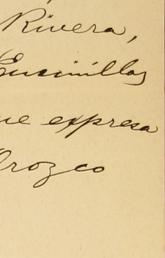 Rivera,
Encinillas
ue expresa
Orozco